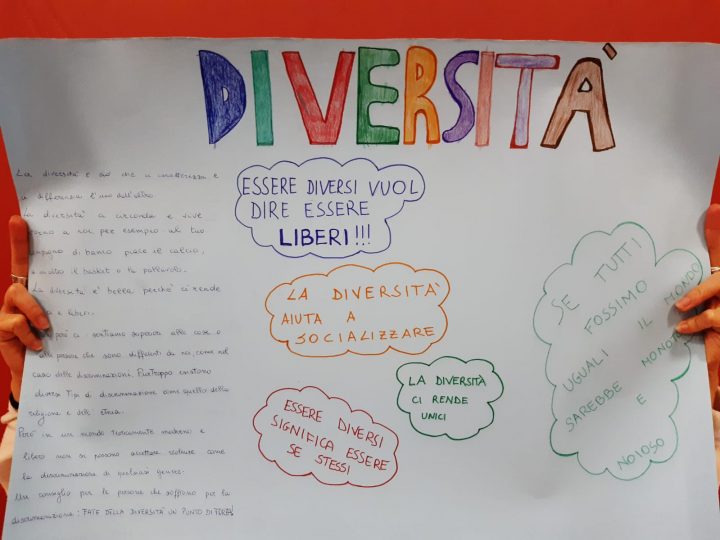 DIVERSITÀ
La diversità è ciò che ci caratterizza e
ci differenzia l'uno dall'altro.
La diversità ci circonda e vive
intorno a noi, per esempio: al tuo
compagno di banco piace il calcio,
a altro il basket o la pallavolo.
La diversità è bella perché ci rende
e liberi.
però ci sentiamo superiori alle cose o
alle persone che sono differenti da noi, come nel
caso delle discriminazioni. Purtroppo esistono
diversi tipi di discriminazione come quello della
religione e delle etnia.
Però in un mondo teoricamente moderno e
libero non si possono accettare realtà come
la discriminazione di qualsiasi genere.
Un consiglio per le persone che soffrono per la
discriminazione: FATE DELLA DIVERSITÀ UN PUNTO DI FORZA!
ESSERE DIVERSI VUOL
DIRE ESSERE
LIBERI!!!
LA DIVERSITÀ
AIUTA A
SOCIALIZZARE
LA DIVERSITÀ
CI RENDE
UNICI
ESSERE DIVERSI
SIGNIFICA ESSERE
SE STESSI
SE TUTTI
FOSSIMO
UGUALI IL MONDO
SAREBBE MONOTONO
E
NOIOSO